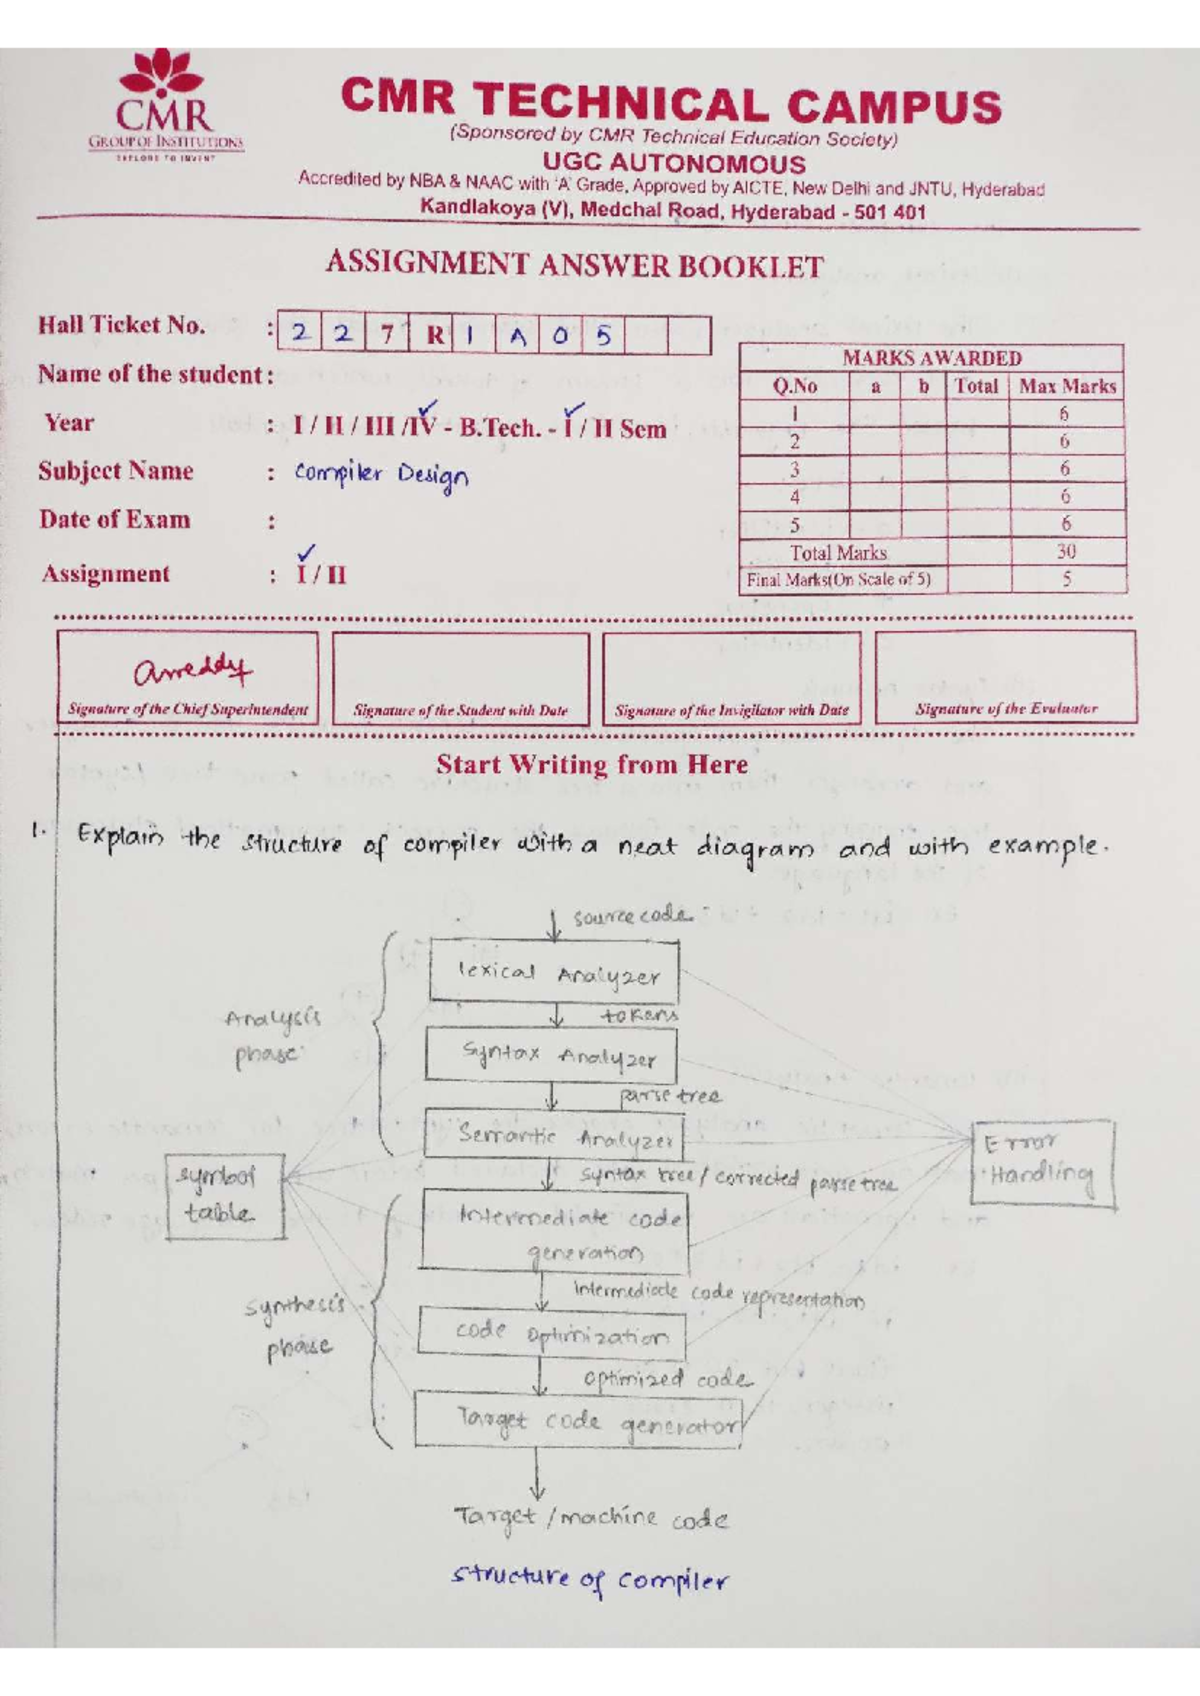 CMR
GROUP OF INSTITUTIONS
EXPLORE TO INVENT
CMR TECHNICAL CAMPUS
(Sponsored by CMR Technical Education Society)
UGC AUTONOMOUS
Accredited by NBA & NAAC with 'A' Grade, Approved by AICTE, New Delhi and JNTU, Hyderabad
Kandlakoya (V), Medchal Road, Hyderabad - 501 401
ASSIGNMENT ANSWER BOOKLET
Hall Ticket No. : 2 2 7 R 1 A 0 5
Name of the student :
Year : I / II / III / IV - B.Tech. - I / II Sem
Subject Name : Compiler Design
Date of Exam :
Assignment : I / II
MARKS AWARDED
Q.No a b Total Max Marks
1 6
2 6
3 6
4 6
5 6
Total Marks 30
Final Marks(On Scale of 5) 5
Signature of the Chief Superintendent
Signature of the Student with Date
Signature of the Invigilator with Date
Signature of the Evaluator
Start Writing from Here
1. Explain the structure of compiler with a neat diagram and with example.
source code
lexical Analyzer
tokens
Analysis
phase
Syntax Analyzer
parse tree
Semantic Analyzer
Error
Handling
symbol
table
syntax tree / corrected parse tree
Intermediate code
generation
Intermediate code representation
Synthesis
phase
code Optimization
optimized code
Target code generator
Target / machine code
structure of compiler